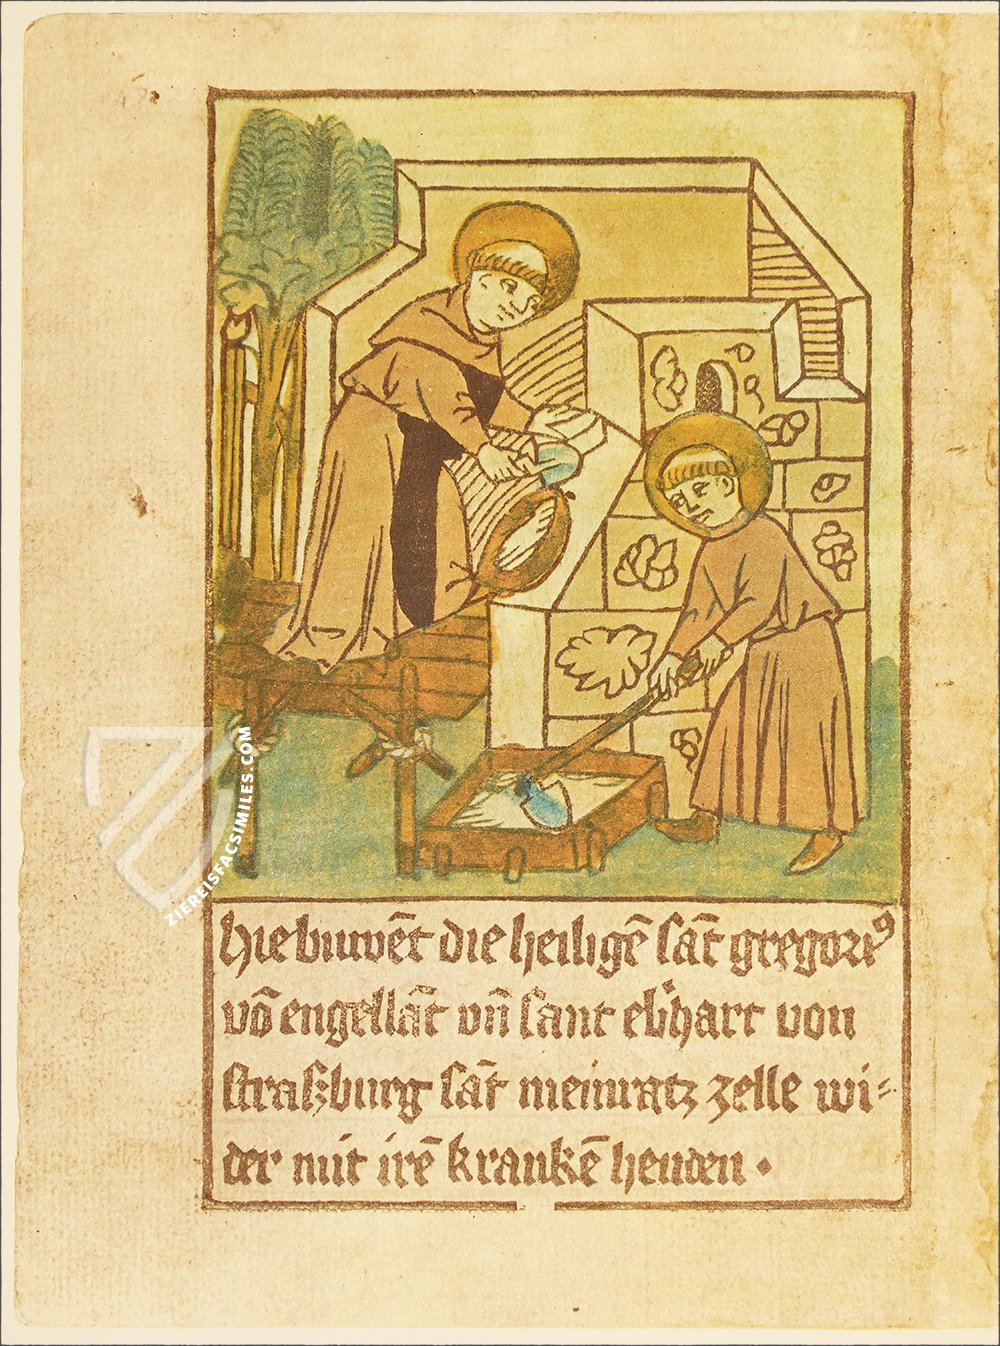 hie buwēt die heiligē sāt gregoriꝰ
vō engellāt vn̄ sant eb̓hart von
straſzburg sāt meinratz zelle wi⸗
der mit irē krankē henden ·
ZIEREISFACSIMILES.COM